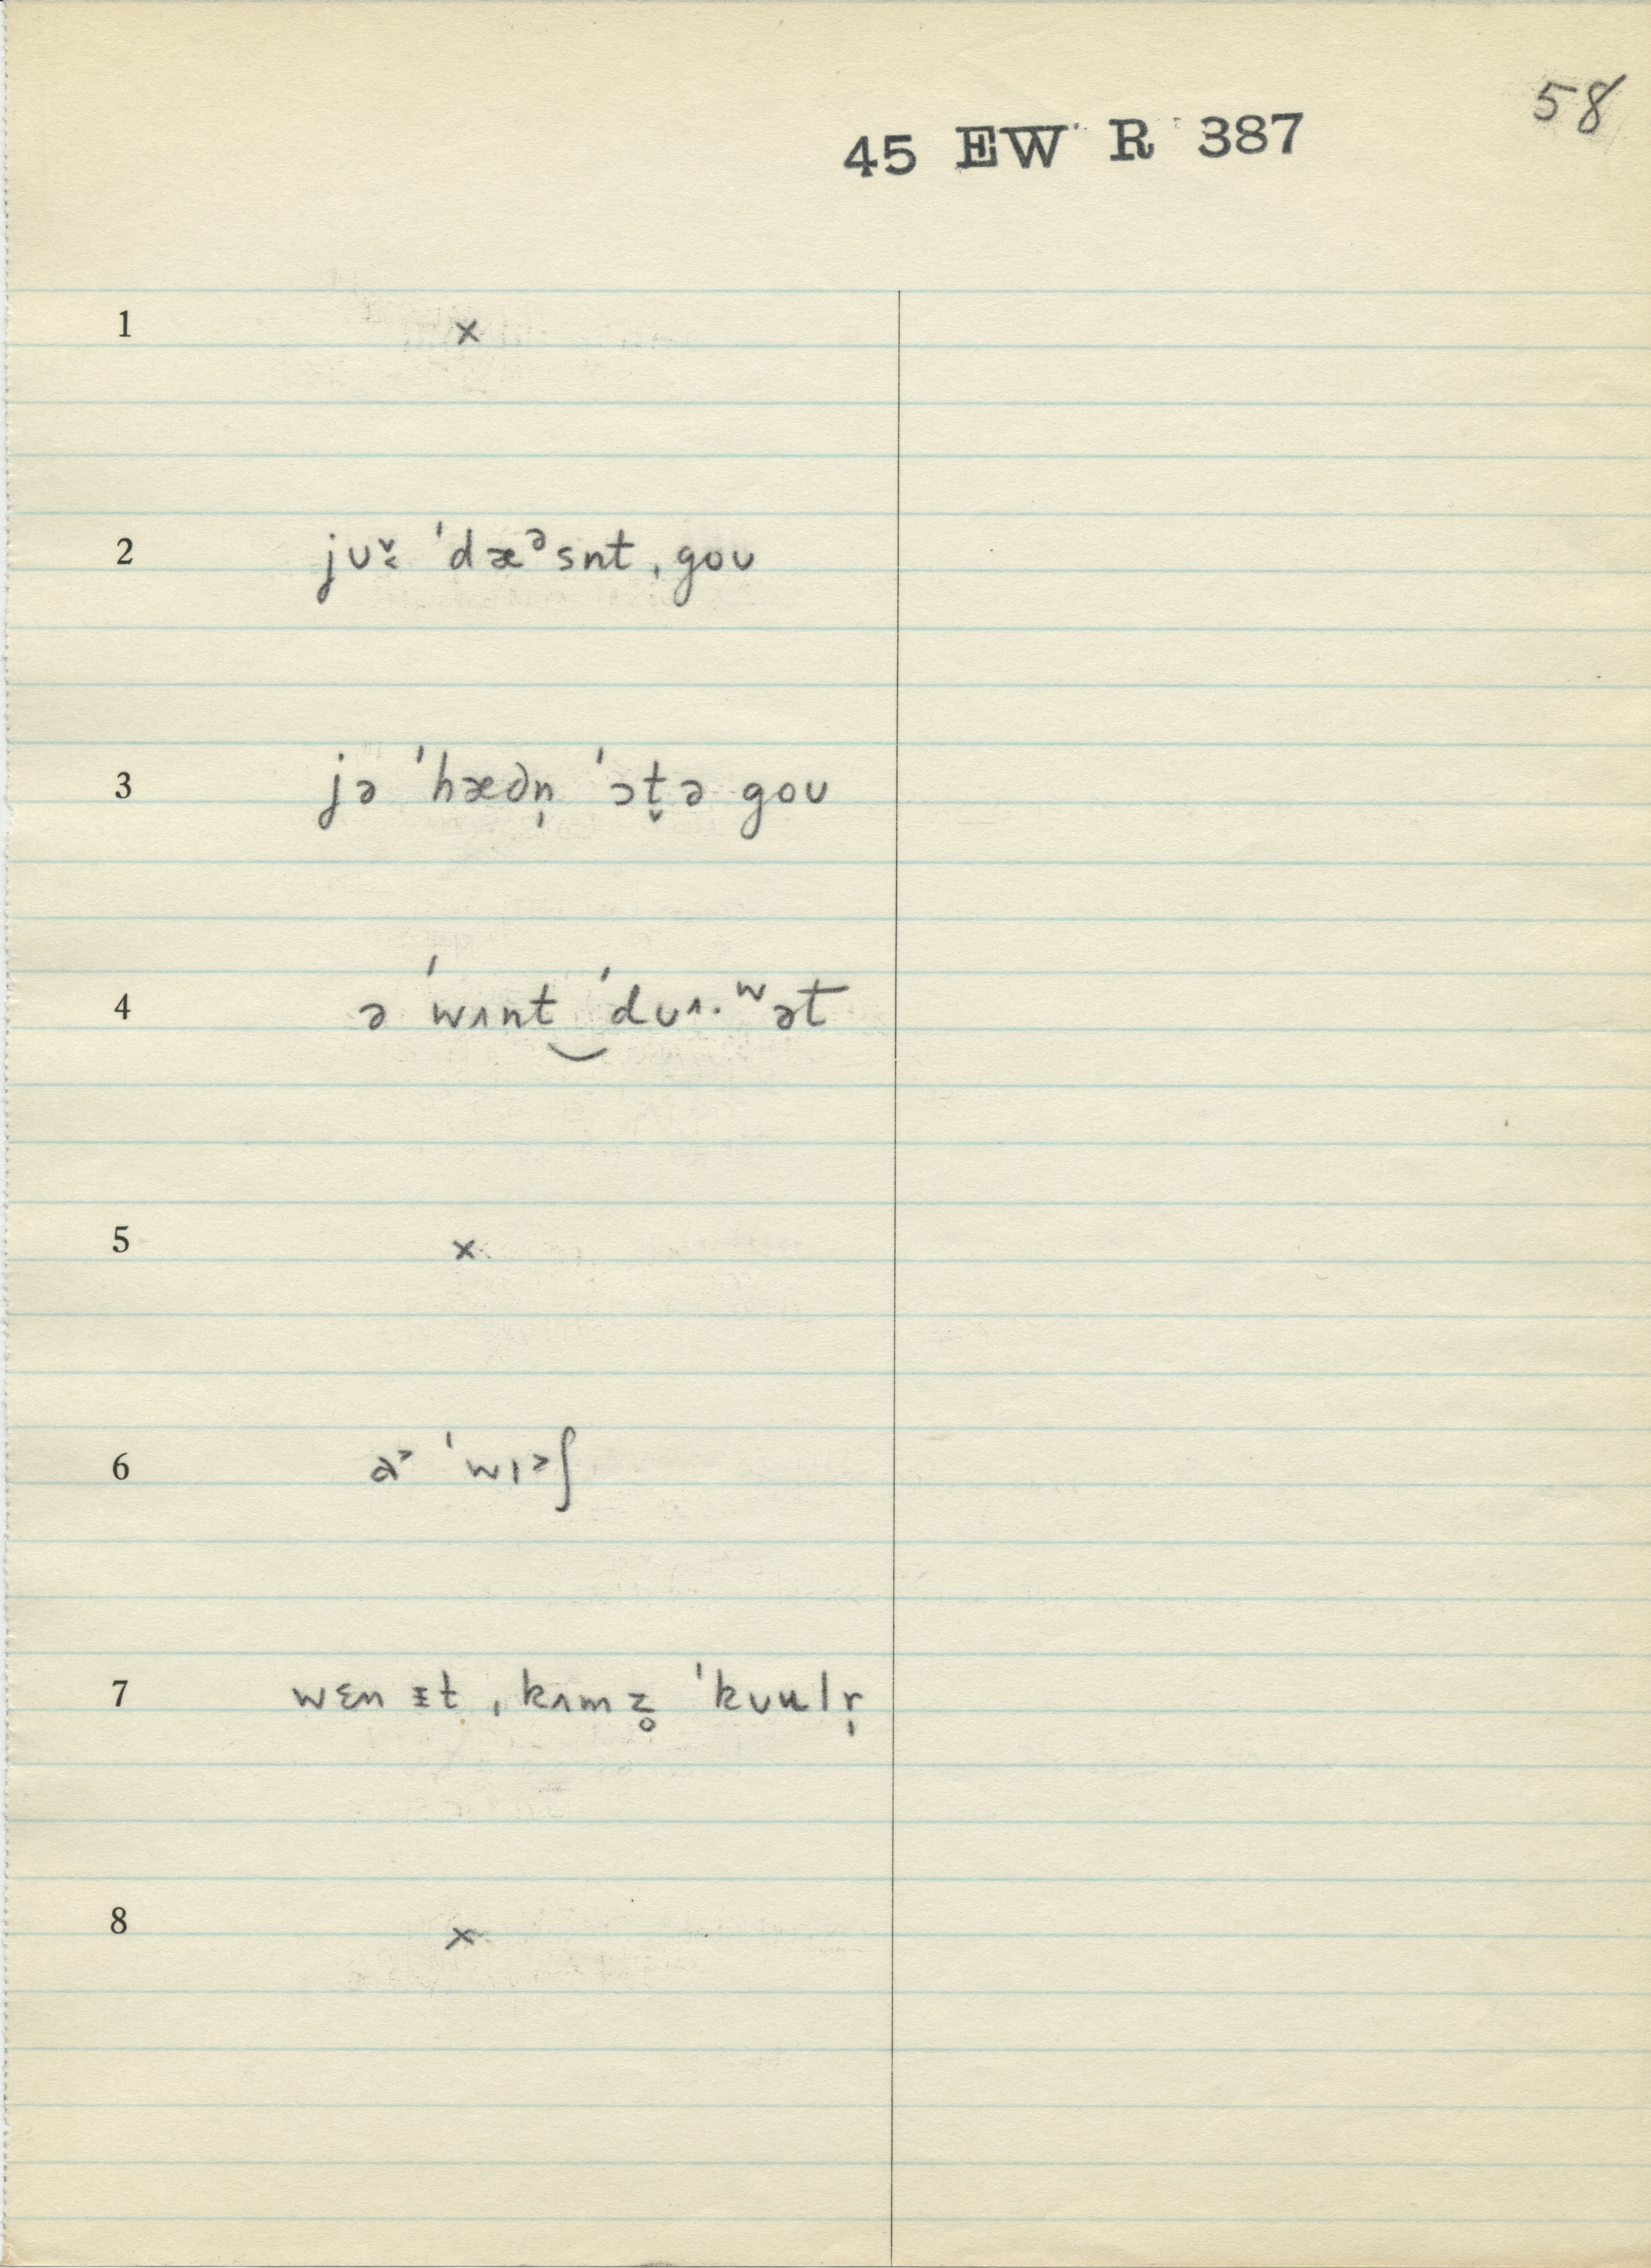 58
45 EW R 387
1 ×
2 jʊ˅˂ ˈdæᵊsnt ˌgoʊ
3 jə ˈhædn̩ ˈɔt̬ə goʊ
4 ə ˈwʌnt‿ˈdʊ˄·ʷət
5 ×
6 a˃ ˈwɪ˃ʃ
7 wɛn ᵻt ˌkʌmz̥ ˈkʊulr̩
8 ×